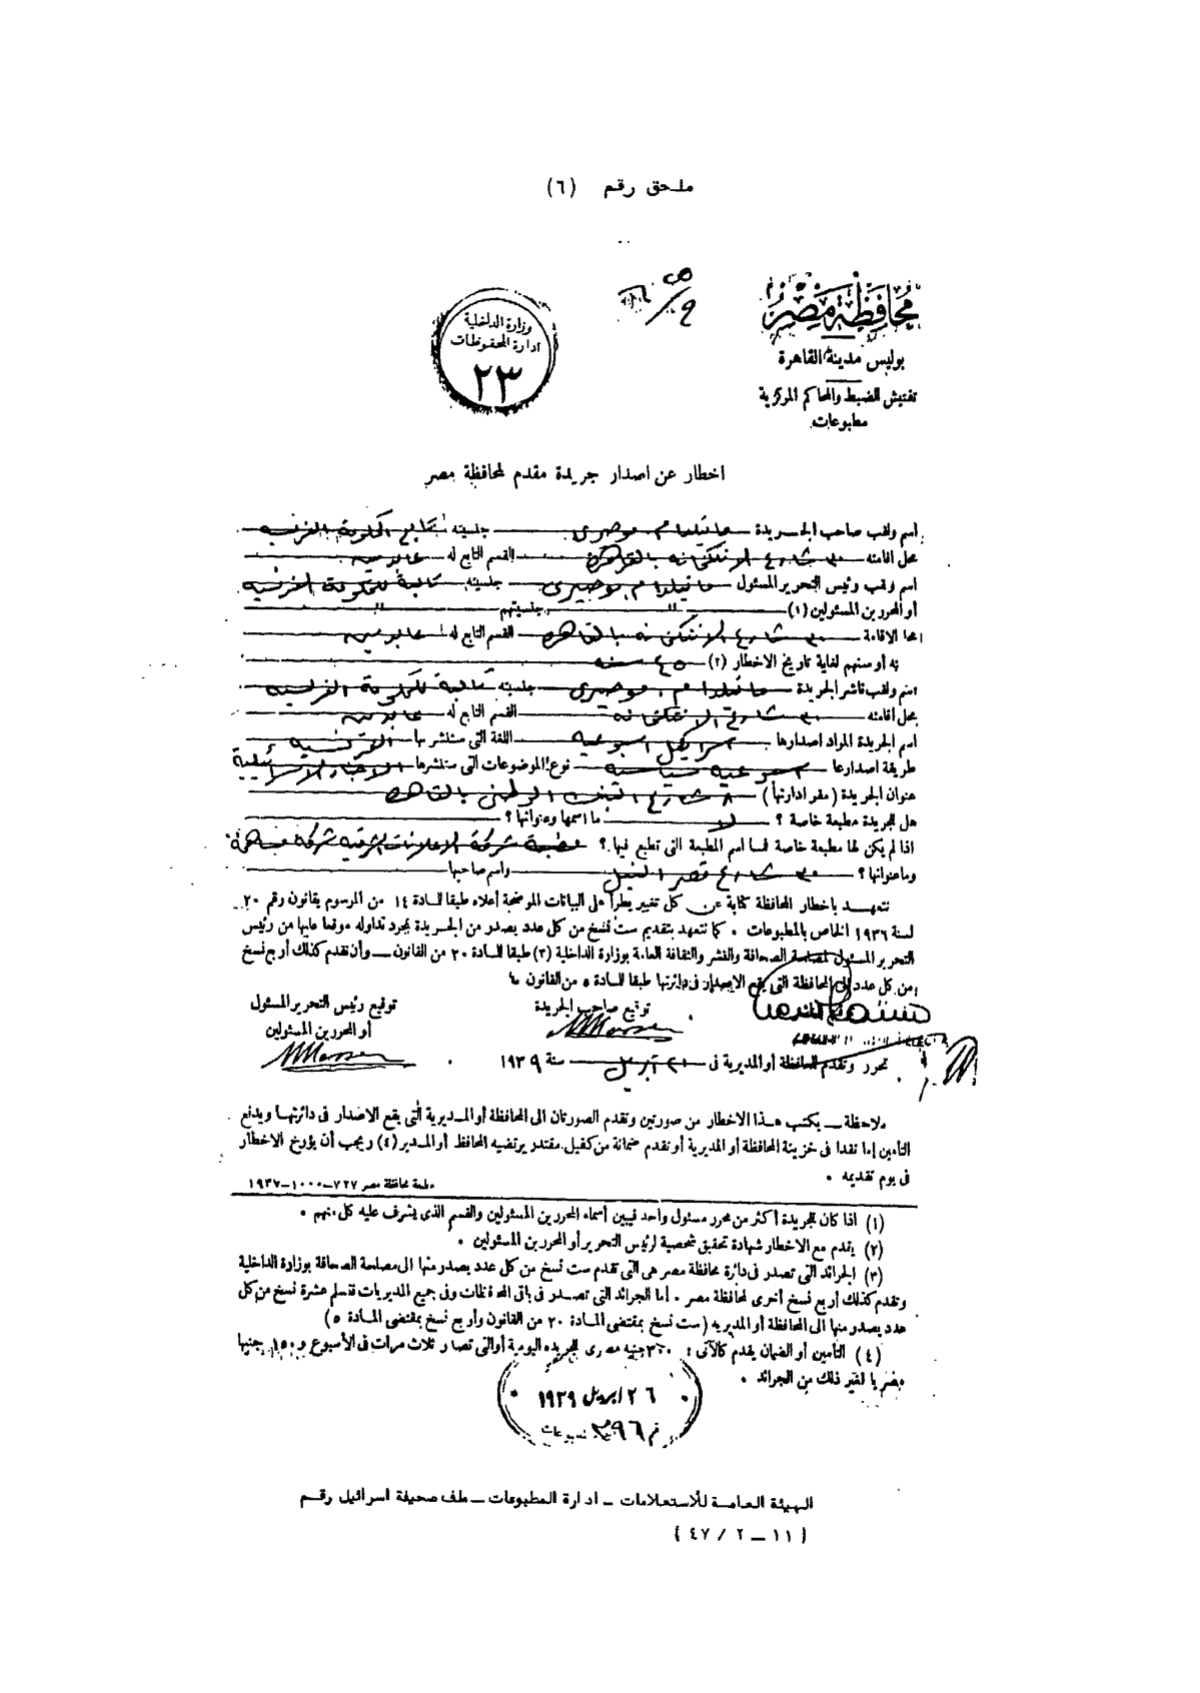 ملحق رقم (٦)
محافظة مصر
بوليس مدينة القاهرة
تفتيش الضبط والمحاكم المركزية
مطبوعات
وزارة الداخلية
ادارة المحفوظات
٢٣
اخطار عن اصدار جريدة مقدم لمحافظة مصر
اسم ولقب صاحب الجريدة ماتيلدا م. موصيرى جنسيته تابع الحكومة الفرنسية
محل اقامته ٣٠ شارع الانتكخانه بالقاهرة القسم التابع له عابدين
اسم ولقب رئيس التحرير المسئول ماتيلدا م. موصيرى جنسيته تابعة للحكومة الفرنسية
أو المحررين المسئولين (١) " جنسيتهم "
محل الاقامة ٣٠ شارع الانتكخانه بالقاهرة القسم التابع له عابدين
أو سنهم لغاية تاريخ الاخطار (٢) ٤٥ سنه
اسم ولقب ناشر الجريدة ماتيلدا م. موصيرى جنسيته تابعة للحكومة الفرنسية
محل اقامته ٣٠ شارع الانتكخانه القسم التابع له عابدين
اسم الجريدة المراد اصدارها اسرائيل اسبوعية اللغة التى ستنشر بها الفرنسية
طريقة اصدارها اسبوعية سياسية نوع الموضوعات التى ستنشرها الاخبار الاسرائيلية
عنوان الجريدة (مقر ادارتها) ٨ شارع البنك الوطنى بالقاهرة
هل للجريدة مطبعة خاصة ؟ لا ما اسمها وعنوانها ؟
اذا لم يكن لها مطبعة خاصة فما اسم المطبعة التى تطبع فيها ؟ مطبعة شركة الاعلانات الشرقية شركة مساهمة
وما عنوانها ؟ شارع قصر النيل واسم صاحبها
نتعهد باخطار المحافظة كتابة عن كل تغيير يطرأ على البيانات الموضحة أعلاه طبقا للمادة ١٤ من المرسوم بقانون رقم ٢٠
لسنة ١٩٣٦ الخاص بالمطبوعات . كما نتعهد بتقديم ست نسخ من كل عدد يصدر من الجريدة بمجرد تداوله موقعا عليها من رئيس
التحرير المسئول لمصلحة الصحافة والنشر والثقافة العامة بوزارة الداخلية (٣) طبقا للمادة ٢٠ من القانون — وأن نقدم كذلك أربع نسخ
من كل عدد الى المحافظة التى يقع الاصدار فى دائرتها طبقا للمادة ٥ من القانون
توقيع صاحب الجريدة
توقيع رئيس التحرير المسئول
أو المحررين المسئولين
تحرر وتقدم للمحافظة أو المديرية فى ٢٦ أبريل سنة ١٩٣٩
ملاحظة — يكتب هذا الاخطار من صورتين وتقدم الصورتان الى المحافظة أو المديرية التى يقع الاصدار فى دائرتها ويدفع
التأمين إما نقدا فى خزينة المحافظة أو المديرية أو تقدم ضمانة من كفيل مقتدر يرتضيه المحافظ أو المدير (٤) ويجب أن يؤرخ الاخطار
فى يوم تقديمه .
مطبعة محافظة مصر ٧٢٧—١٠٠٠—١٩٣٧
(١) اذا كان للجريدة أكثر من محرر مسئول واحد فيبين أسماء المحررين المسئولين والقسم الذى يشرف عليه كل منهم .
(٢) يقدم مع الاخطار شهادة تحقيق شخصية لرئيس التحرير أو المحررين المسئولين .
(٣) الجرائد التى تصدر فى دائرة محافظة مصر هى التى تقدم ست نسخ من كل عدد يصدر منها الى مصلحة الصحافة بوزارة الداخلية
وتقدم كذلك أربع نسخ أخرى لمحافظة مصر . أما الجرائد التى تصدر فى باقى المحافظات وفى جميع المديريات فتسلم عشرة نسخ من كل
عدد يصدر منها الى المحافظة أو المديريه (ست نسخ بمقتضى المادة ٢٠ من القانون وأربع نسخ بمقتضى المادة ٥)
(٤) التأمين أو الضمان يقدم كالآتى : ٣٠٠ جنيه مصرى للجريده اليومية أو التى تصدر ثلاث مرات فى الأسبوع و ١٥٠ جنيها
مصريا لغير ذلك من الجرائد .
٢٦ ابريل ١٩٣٩
الهيئة العامة للأستعلامات – ادارة المطبوعات – ملف صحيفة اسرائيل رقم
( ١١ – ٢ / ٤٧ )